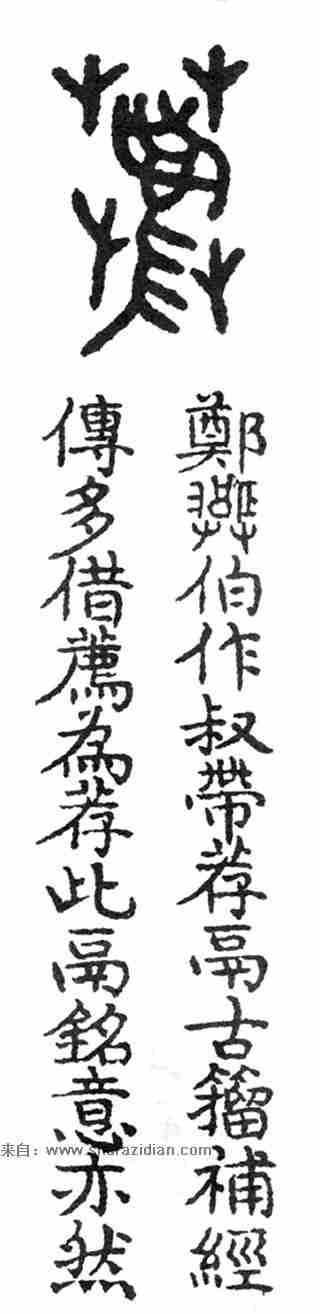 鄭
伯作叔帶荐鬲古籀補經
傳多借薦為荐此鬲銘意亦然
来自：www.shufazidian.com